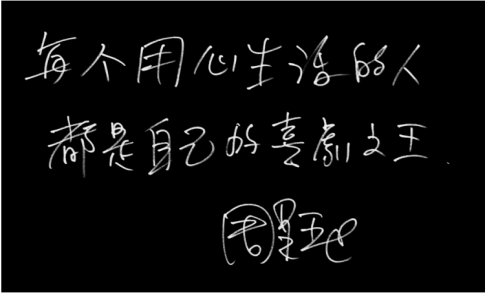 每个用心生活的人
都是自己的喜劇之王.
周星驰